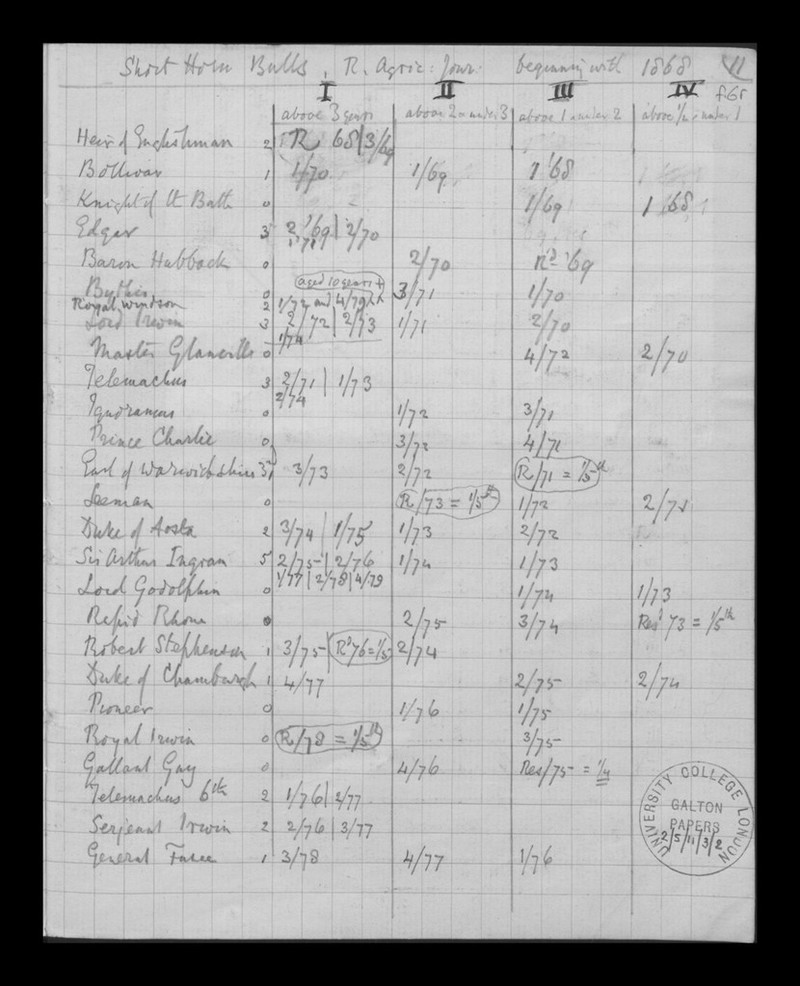 Short Horn Bulls, R. Agric: Jour: beginning with 1868 11
I II III IV f6r
above 3 years above 2 & under 3 above 1 & under 2 above ½ & under 1
Heir of Englishman 2 R 68 | 3/69
Bolivar 1 1/70 1/69 1 '68
Knight of the Bath 0 1/69 1 68
Edgar 3 2 '69 | 2/70
1 '71
Baron Hubback 0 2/70 Rd '69
aged 10 years +
0 3/71 1/70
Royal Windsor 2 1/72 and 4/79
Lord Irwin 3 2/72 | 2/73 1/71 2/70
1/74
Master Glanville 0 4/72 2/70
Telemachus 3 2/71 | 1/73
2/74
Ignoramus 0 1/72 3/71
Prince Charlie 0 3/72 4/71
Earl of Warwickshire 3/73 2/72 R/71 = 1/5th
Leeman 0 R/73 = 1/5th 1/72
Duke of Aosta 2 3/74 | 1/75 1/73 2/72
Sir Arthur Ingram 5 2/75 | 2/76 1/74 1/73
1/77 | 2/78 | 4/79
Lord Godolphin 0 1/74 1/73
Rhone 2/75 3/74 Resd 73 = 1/5th
Robert Stephenson 1 3/75 | Rd 76 = 1/5 2/74
Duke of Chamburgh 1 4/77 2/75 2/74
Pioneer 0 1/76 1/75
Royal Irwin 0 R/78 = 1/5th 3/75
Gallant Gay 0 4/76 Res/75 = 1/4
Telemachus 6th 2 1/76 | 2/77
Serjeant Irwin 2 2/76 | 3/77
General Fusee 1 3/78 4/77 1/76
UNIVERSITY COLLEGE LONDON
GALTON
PAPERS
2/5/11/3/2